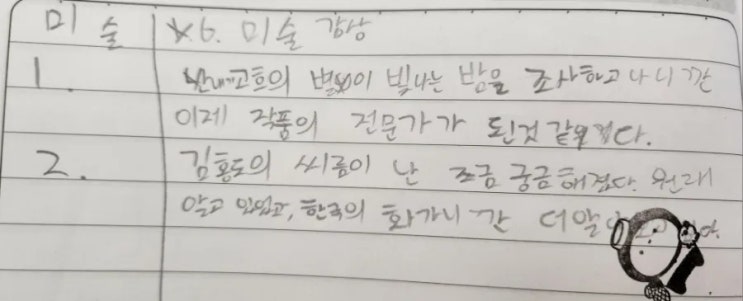 미술 ☆6. 미술 감상
1. 반 고흐의 별이 빛나는 밤을 조사하고 나니깐
이제 작품의 전문가가 된것 같다.
2. 김홍도의 씨름이 난 조금 궁금해졌다. 원래
알고 있었고, 한국의 화가니깐 더 알